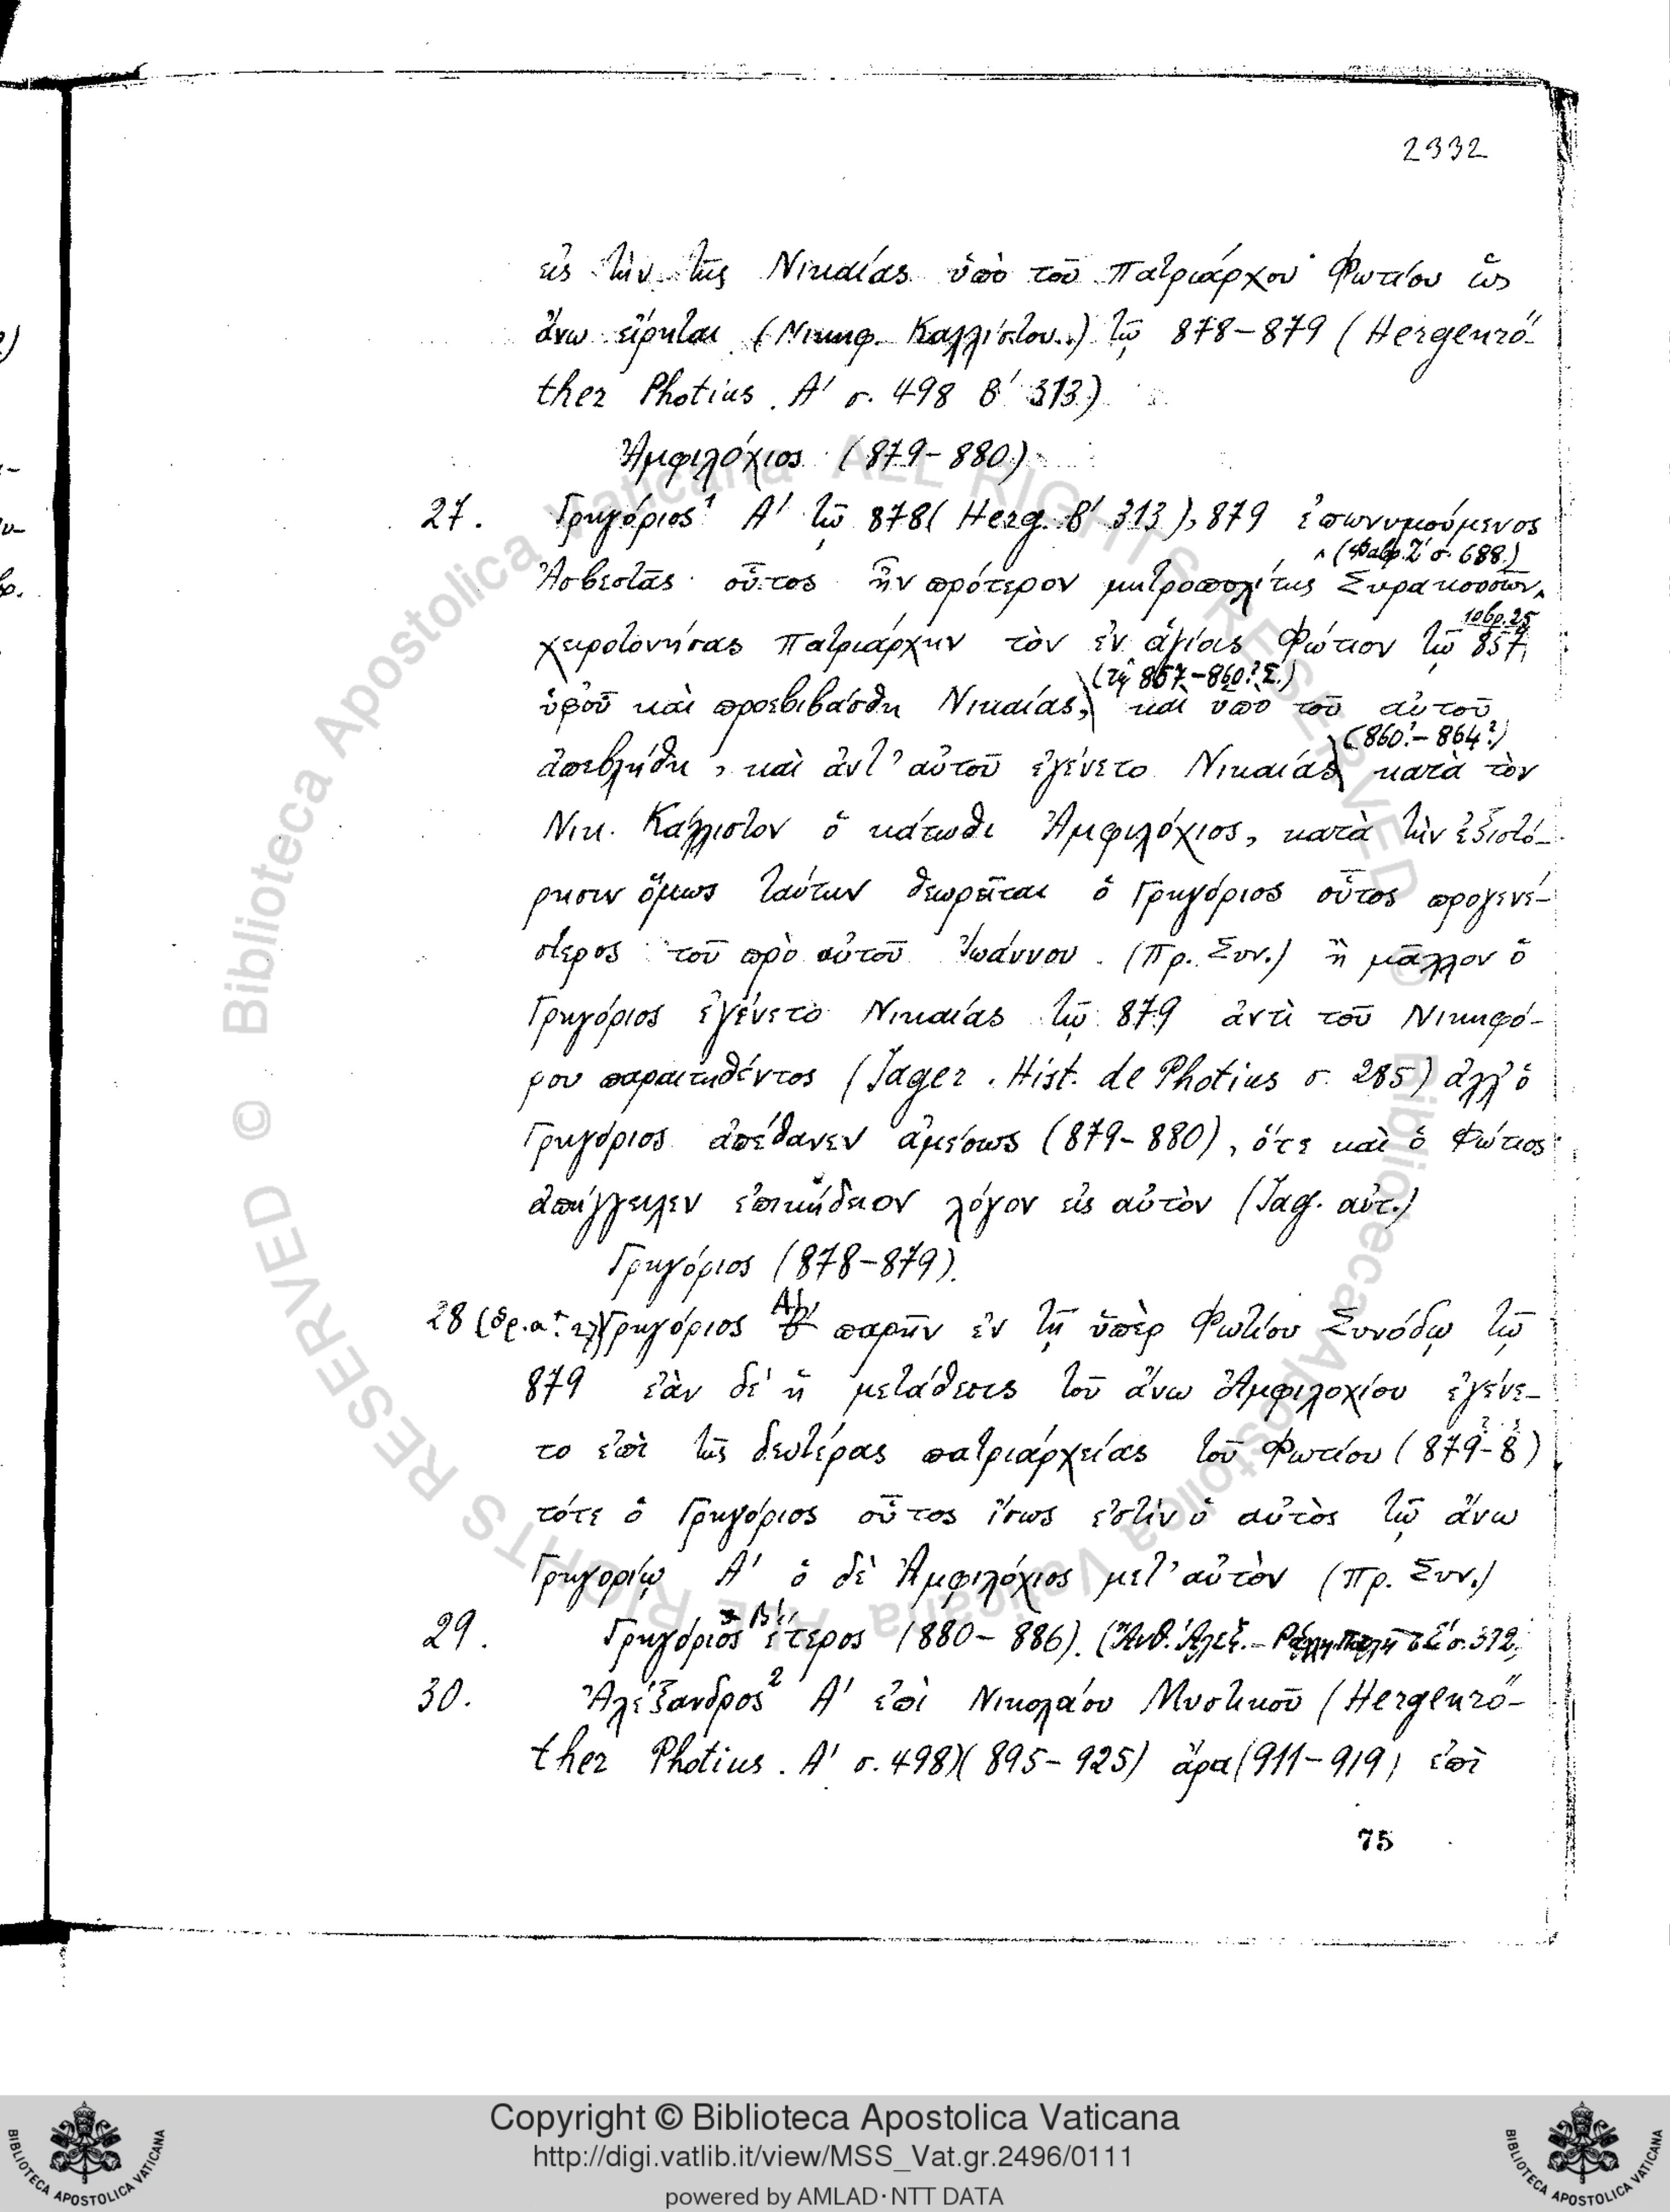 2332
εἰς τὴν τῆς Νικαίας ὑπὸ τοῦ Πατριάρχου Φωτίου ὡς
ἄνω εἴρηται (Νικηφ. Καλλίστου..) τῷ 878-879 (Hergenrö-
ther Photius. Α' σ. 498 Β' 313)
Ἀμφιλόχιος (879-880)
27. Γρηγόριος¹ Α' τῷ 878 (Herg. Β' 313), 879 ἐπωνυμούμενος
^ (Φαβρ. Ζ' σ. 688)
Ἀσβεστᾶς οὗτος ἦν πρότερον μητροπολίτης Συρακουσῶν,^
10βρ. 25
χειροτονήσας Πατριάρχην τὸν ἐν ἁγίοις Φώτιον τῷ 857,
(τῷ 857-860? Σ.)
ὑφ' οὗ καὶ προεβιβάσθη Νικαίας, καὶ ὑπὸ τοῦ αὐτοῦ
(860?-864?)
ἀπεβλήθη, καὶ ἀντ' αὐτοῦ ἐγένετο Νικαίας κατὰ τὸν
Νικ. Κάλλιστον ὁ κάτωθι Ἀμφιλόχιος, κατὰ τὴν ἐξιστό-
ρησιν ὅμως ταύτην θεωρεῖται ὁ Γρηγόριος οὗτος προγενέ-
στερος τοῦ πρὸ αὐτοῦ Ἰωάννου. (Πρ. Συν.) ἢ μᾶλλον ὁ
Γρηγόριος ἐγένετο Νικαίας τῷ 879 ἀντὶ τοῦ Νικηφό-
ρου παραιτηθέντος (Jager. Hist. de Photius σ. 285) ἀλλ' ὁ
Γρηγόριος ἀπέθανεν ἀμέσως (879-880), ὅτε καὶ ὁ Φώτιος
ἀπήγγειλεν ἐπικήδειον λόγον εἰς αὐτὸν (Jag. αὐτ.)
Γρηγόριος (878-879).
28 Γρηγόριος Α' παρῆν ἐν τῇ ὑπὲρ Φωτίου Συνόδῳ τῷ
879 ἐὰν δὲ ἡ μετάθεσις τοῦ ἄνω Ἀμφιλοχίου ἐγένε-
το ἐπὶ τῆς δευτέρας πατριαρχείας τοῦ Φωτίου (879?-8?)
τότε ὁ Γρηγόριος οὗτος ἴσως ἐστὶν ὁ αὐτὸς τῷ ἄνω
Γρηγορίῳ Α' ὁ δὲ Ἀμφιλόχιος μετ' αὐτὸν (Πρ. Συν.)
29. Γρηγόριος Β' ἕτερος (880-886). (Ἄνθ. Ἀλεξ. σ. 372,
30. Ἀλέξανδρος² Α' ἐπὶ Νικολάου Μυστικοῦ (Hergenrö-
ther Photius. Α' σ. 498) (895-925) ἄρα (911-919) ἐπὶ
75
© Biblioteca Apostolica Vaticana ALL RIGHTS RESERVED © Biblioteca Apostolica Vaticana ALL RIGHTS RESERVED
Copyright © Biblioteca Apostolica Vaticana
http://digi.vatlib.it/view/MSS_Vat.gr.2496/0111
powered by AMLAD·NTT DATA
BIBLIOTECA APOSTOLICA VATICANA
BIBLIOTECA APOSTOLICA VATICANA